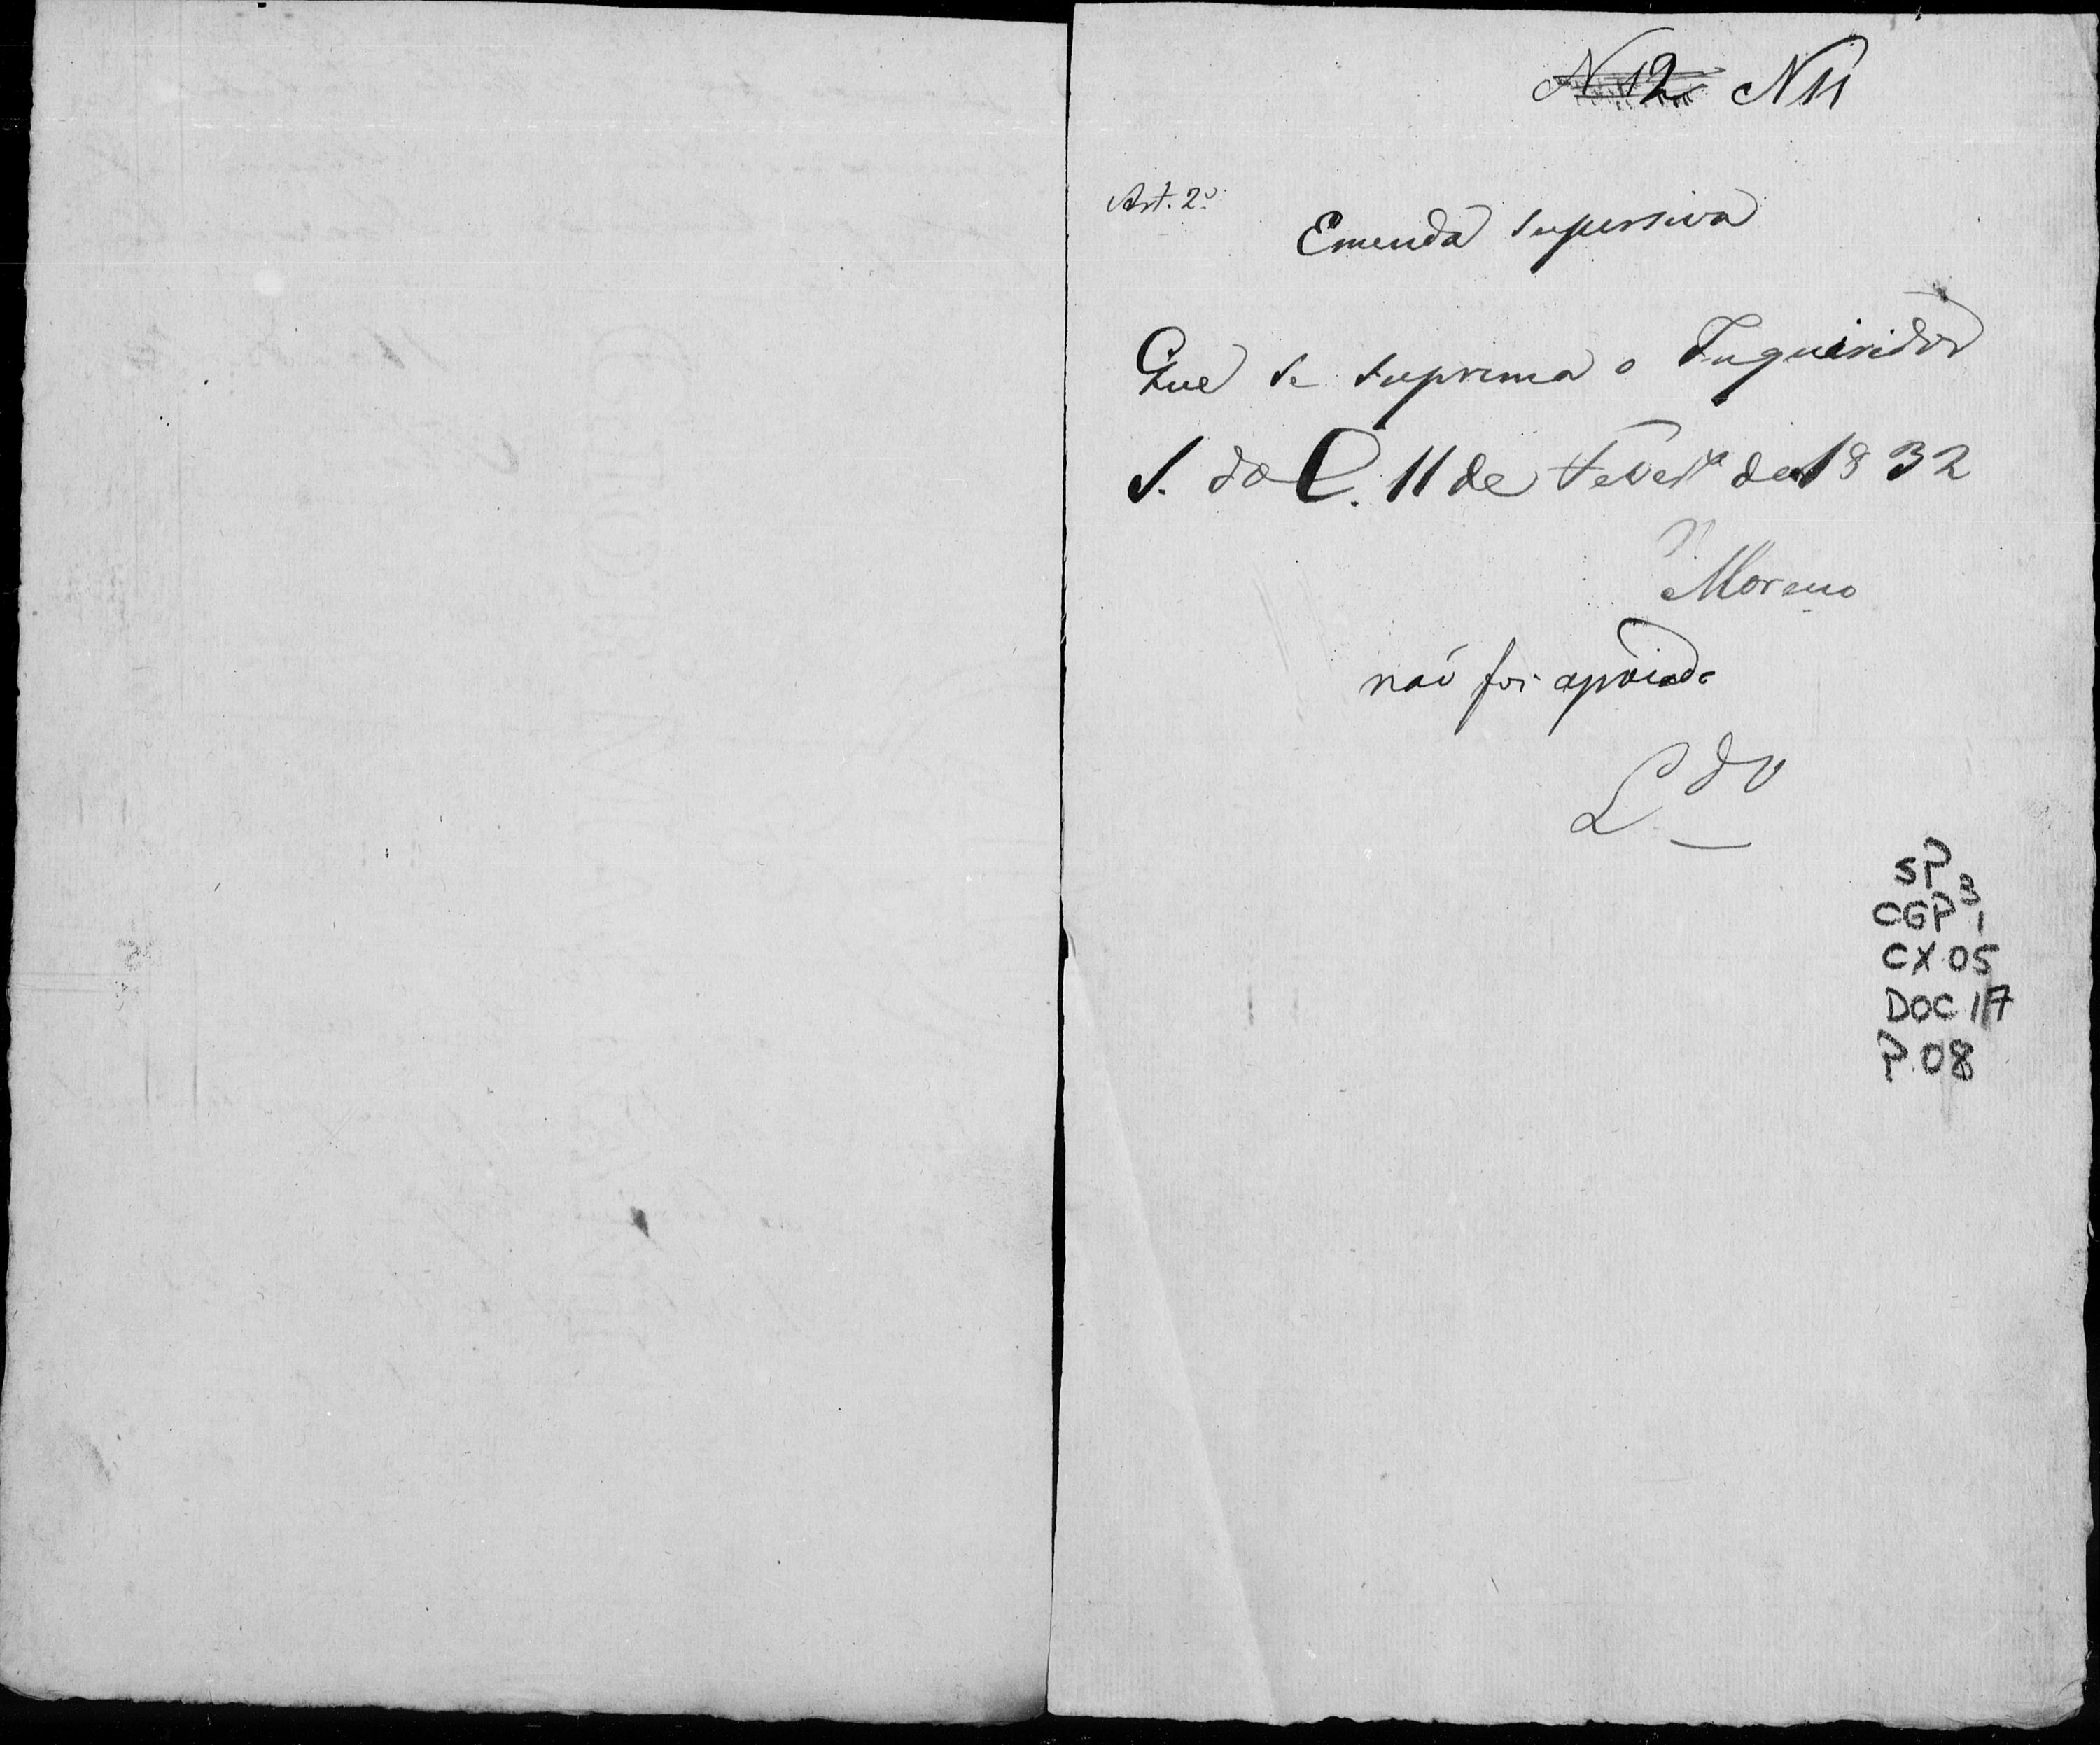 N 12 N 11
Art. 2º
Emenda supressiva
Que se suprima o Inquiridor
S. do C. 11 de Fever.º de 1832
Moreno
naõ foi apoiada
L.do
SP
CGP 3,1
CX 05
DOC 17
P. 08